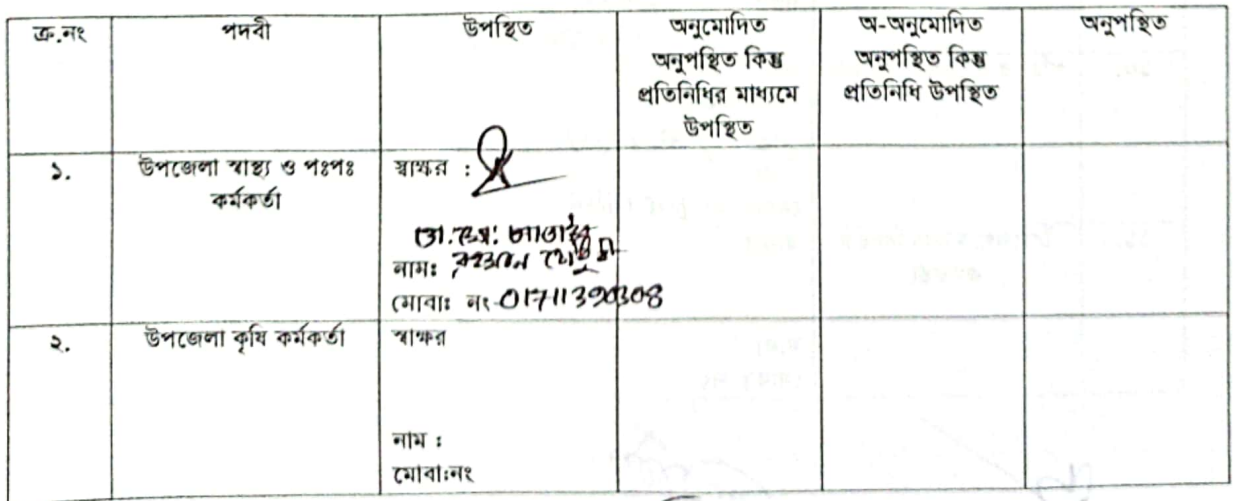 ক্র.নং পদবী উপস্থিত অনুমোদিত অনুপস্থিত কিন্তু প্রতিনিধির মাধ্যমে উপস্থিত অ-অনুমোদিত অনুপস্থিত কিন্তু প্রতিনিধি উপস্থিত অনুপস্থিত
১. উপজেলা স্বাস্থ্য ও পঃপঃ কর্মকর্তা স্বাক্ষর :
নামঃ
মোবাঃ নং 01711390308
২. উপজেলা কৃষি কর্মকর্তা স্বাক্ষর
নাম :
মোবা:নং